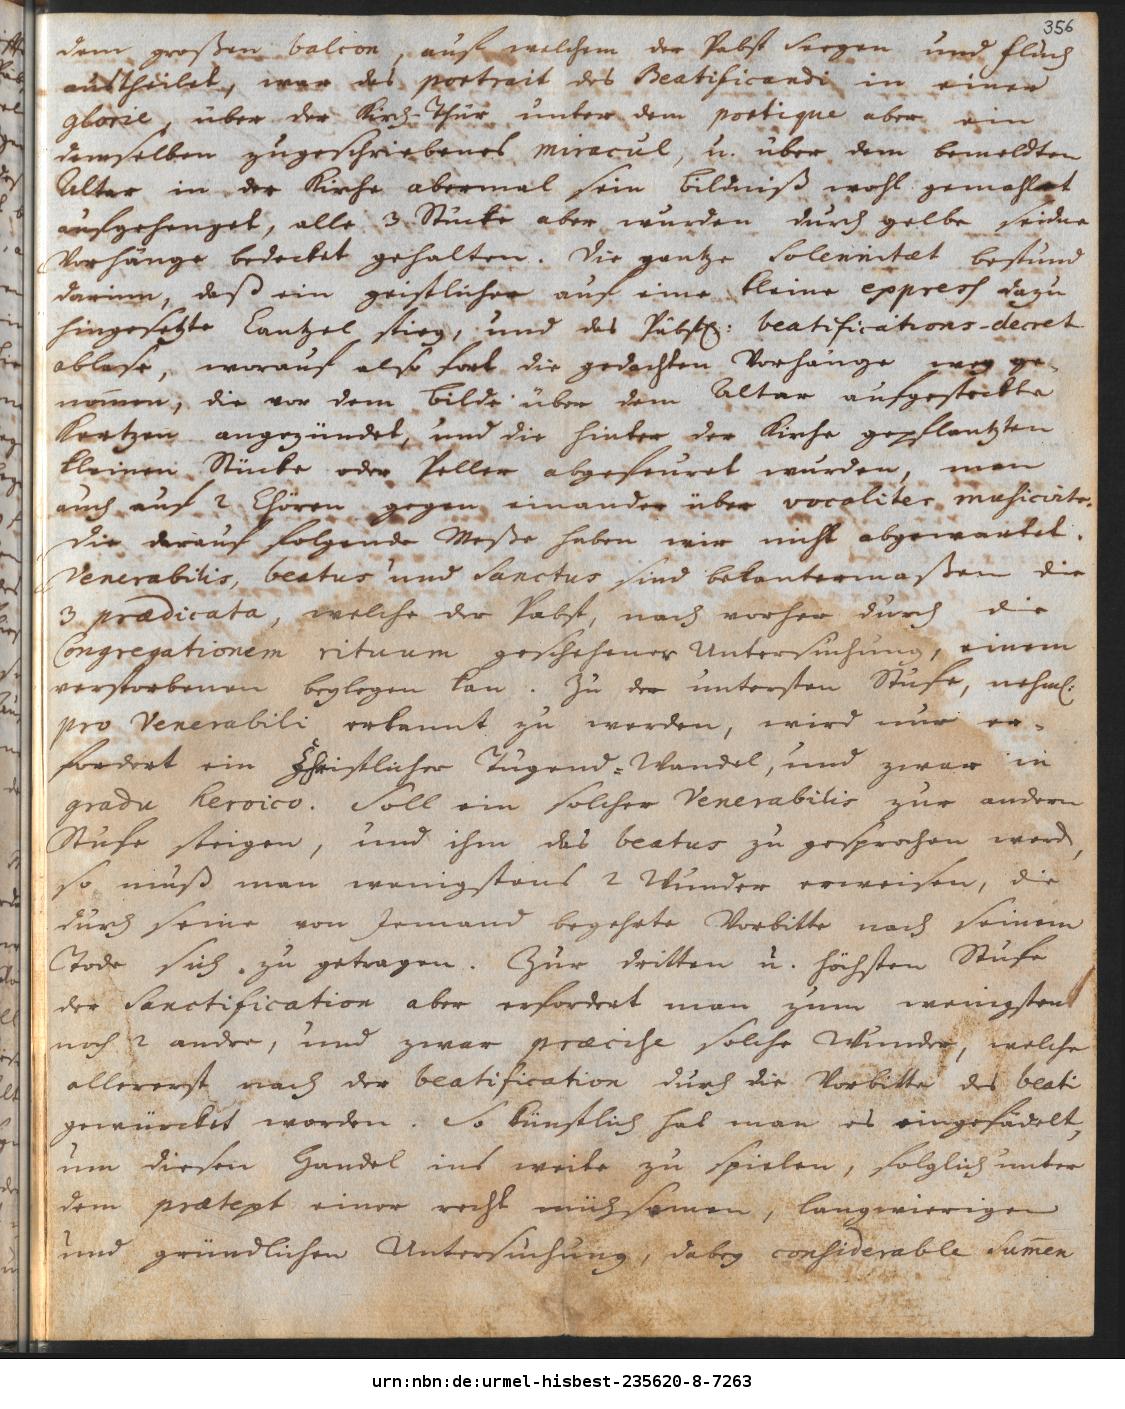 356
dem großen balcon, auf welchem der Pabst Seegen und Fluch
austheilet, war das portrait des Beatificandi in einer
glorie, über der Kirch-Thür unter dem portique aber ein
demselben zugeschriebenes miracul, u. über dem bemeldten
Altar in der Kirche abermal sein Bildniß wohl gemahlet
aufgehenget, alle 3 Stücke aber wurden durch gelbe seidne
Vorhänge bedecket gehalten. Die gantze Solennitæt bestund
darinn, daß ein geistlicher auf eine kleine express dazu
hingesetzte Cantzel stieg, und das Päbstl: beatifications-decret
ablase, worauf also fort die gedachten Vorhänge weg ge-
nom̄en, die vor dem Bilde über dem Altar aufgesteckte
Kertzen angezündet, und die hinter der Kirche gepflantzten
kleinen Stücke oder Peller abgefeuret wurden, man
auch auf 2 Chören gegen einander über vocaliter musicirte.
Die darauf folgende Meße haben wir nicht abgewartet.
Venerabilis, beatus und Sanctus sind bekantermaßen die
3 prædicata, welche der Pabst, nach vorher durch die
Congregationem rituum geschehener Untersuchung, einem
verstorbenen beylegen kan. Zu der untersten Stufe, nehml:
pro Venerabili erkannt zu werden, wird nur er-
fordert ein Christlicher Tugend-Wandel, und zwar in
gradu heroico. Soll ein solcher Venerabilis zur andern
Stufe steigen, und ihm das beatus zu gesprochen werd,
so muß man wenigstens 2 Wunder erweisen, die
durch seine von Jemand begehrte Vorbitte nach seinem
Tode sich zu getragen. Zur dritten u. höchsten Stufe
der Sanctification aber erfordert man zum wenigsten
noch 2 andre, und zwar præcise solche Wunder, welche
allererst nach der beatification durch die Vorbitte des beati
gewürcket worden. So künstlich hat man es eingefädelt,
um diesen Handel ins weite zu spielen, folglich unter
dem prætext einer recht mühsamen, langwierigen
und gründlichen Untersuchung, dabey considerable Sum̄en
urn:nbn:de:urmel-hisbest-235620-8-7263